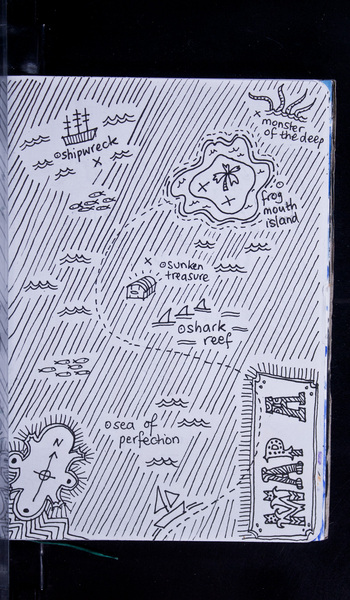 monster
of the deep
shipwreck
frog
mouth
island
sunken
treasure
shark
reef
sea of
perfection
N
MAP A